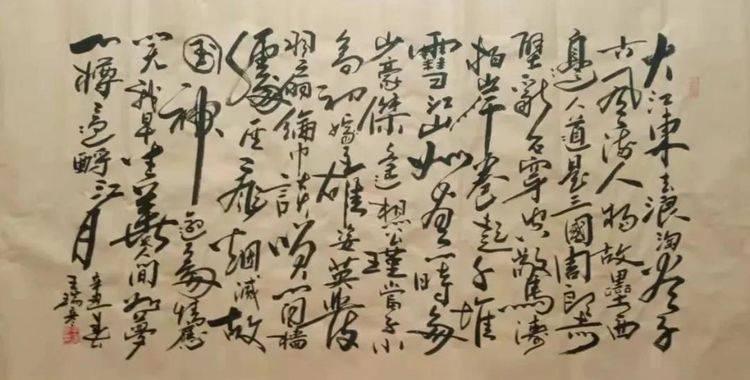 大江东去浪淘尽千
古风流人物故垒西
边人道是三國周郎赤
壁乱石穿空惊涛
拍岸卷起千堆
雪江山如画一時多
少豪傑遥想公瑾當年小
喬初嫁了雄姿英发
羽扇綸巾談笑间檣
櫓灰飞烟滅故
國神遊多情應
笑我早生華髮人间如夢
一樽还酹江月